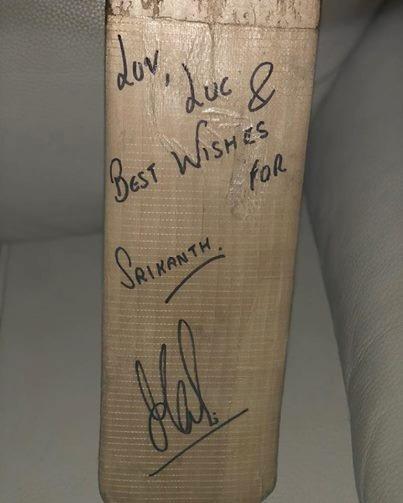 Luv, Luc &
BEST WISHES
FOR
SRIKANTH.